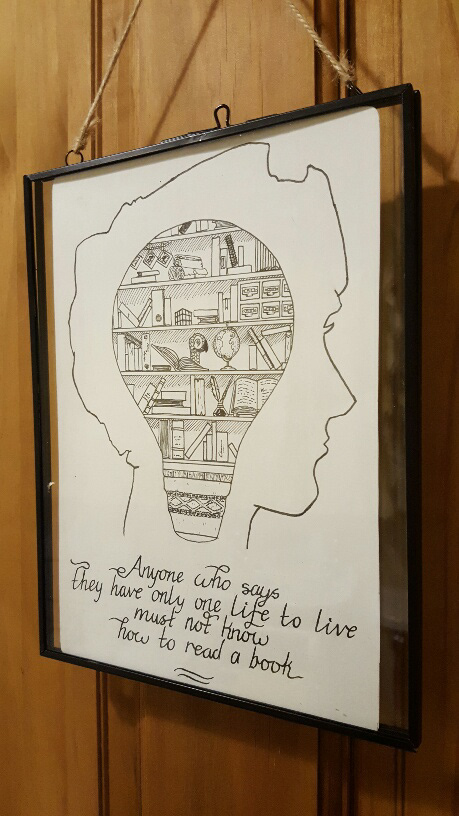 Anyone who says
they have only one life to live
must not know
how to read a book